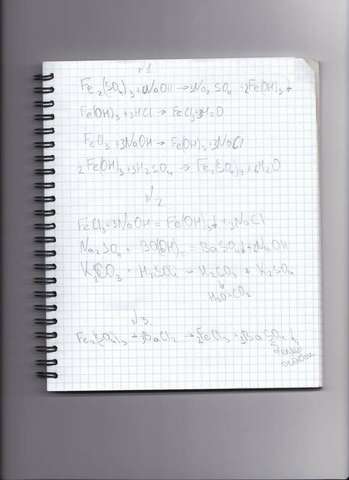 √1
Fe₂(SO₄)₃ + 6NaOH → 3Na₂SO₄ + 2Fe(OH)₃↓
Fe(OH)₃ + 3HCl → FeCl₃ + 3H₂O
FeCl₃ + 3NaOH → Fe(OH)₃ + 3NaCl
2Fe(OH)₃ + 3H₂SO₄ → Fe₂(SO₄)₃ + 6H₂O
√2
FeCl₃ + 3NaOH = Fe(OH)₃↓ + 3NaCl
Na₂SO₄ + Ba(OH)₂ = BaSO₄↓ + 2NaOH
K₂CO₃ + H₂SO₄ → H₂CO₃ + K₂SO₄
H₂O CO₂
√3
Fe₂(SO₄)₃ + 3BaCl₂ → 2FeCl₃ + 3BaSO₄↓
белый
осадок